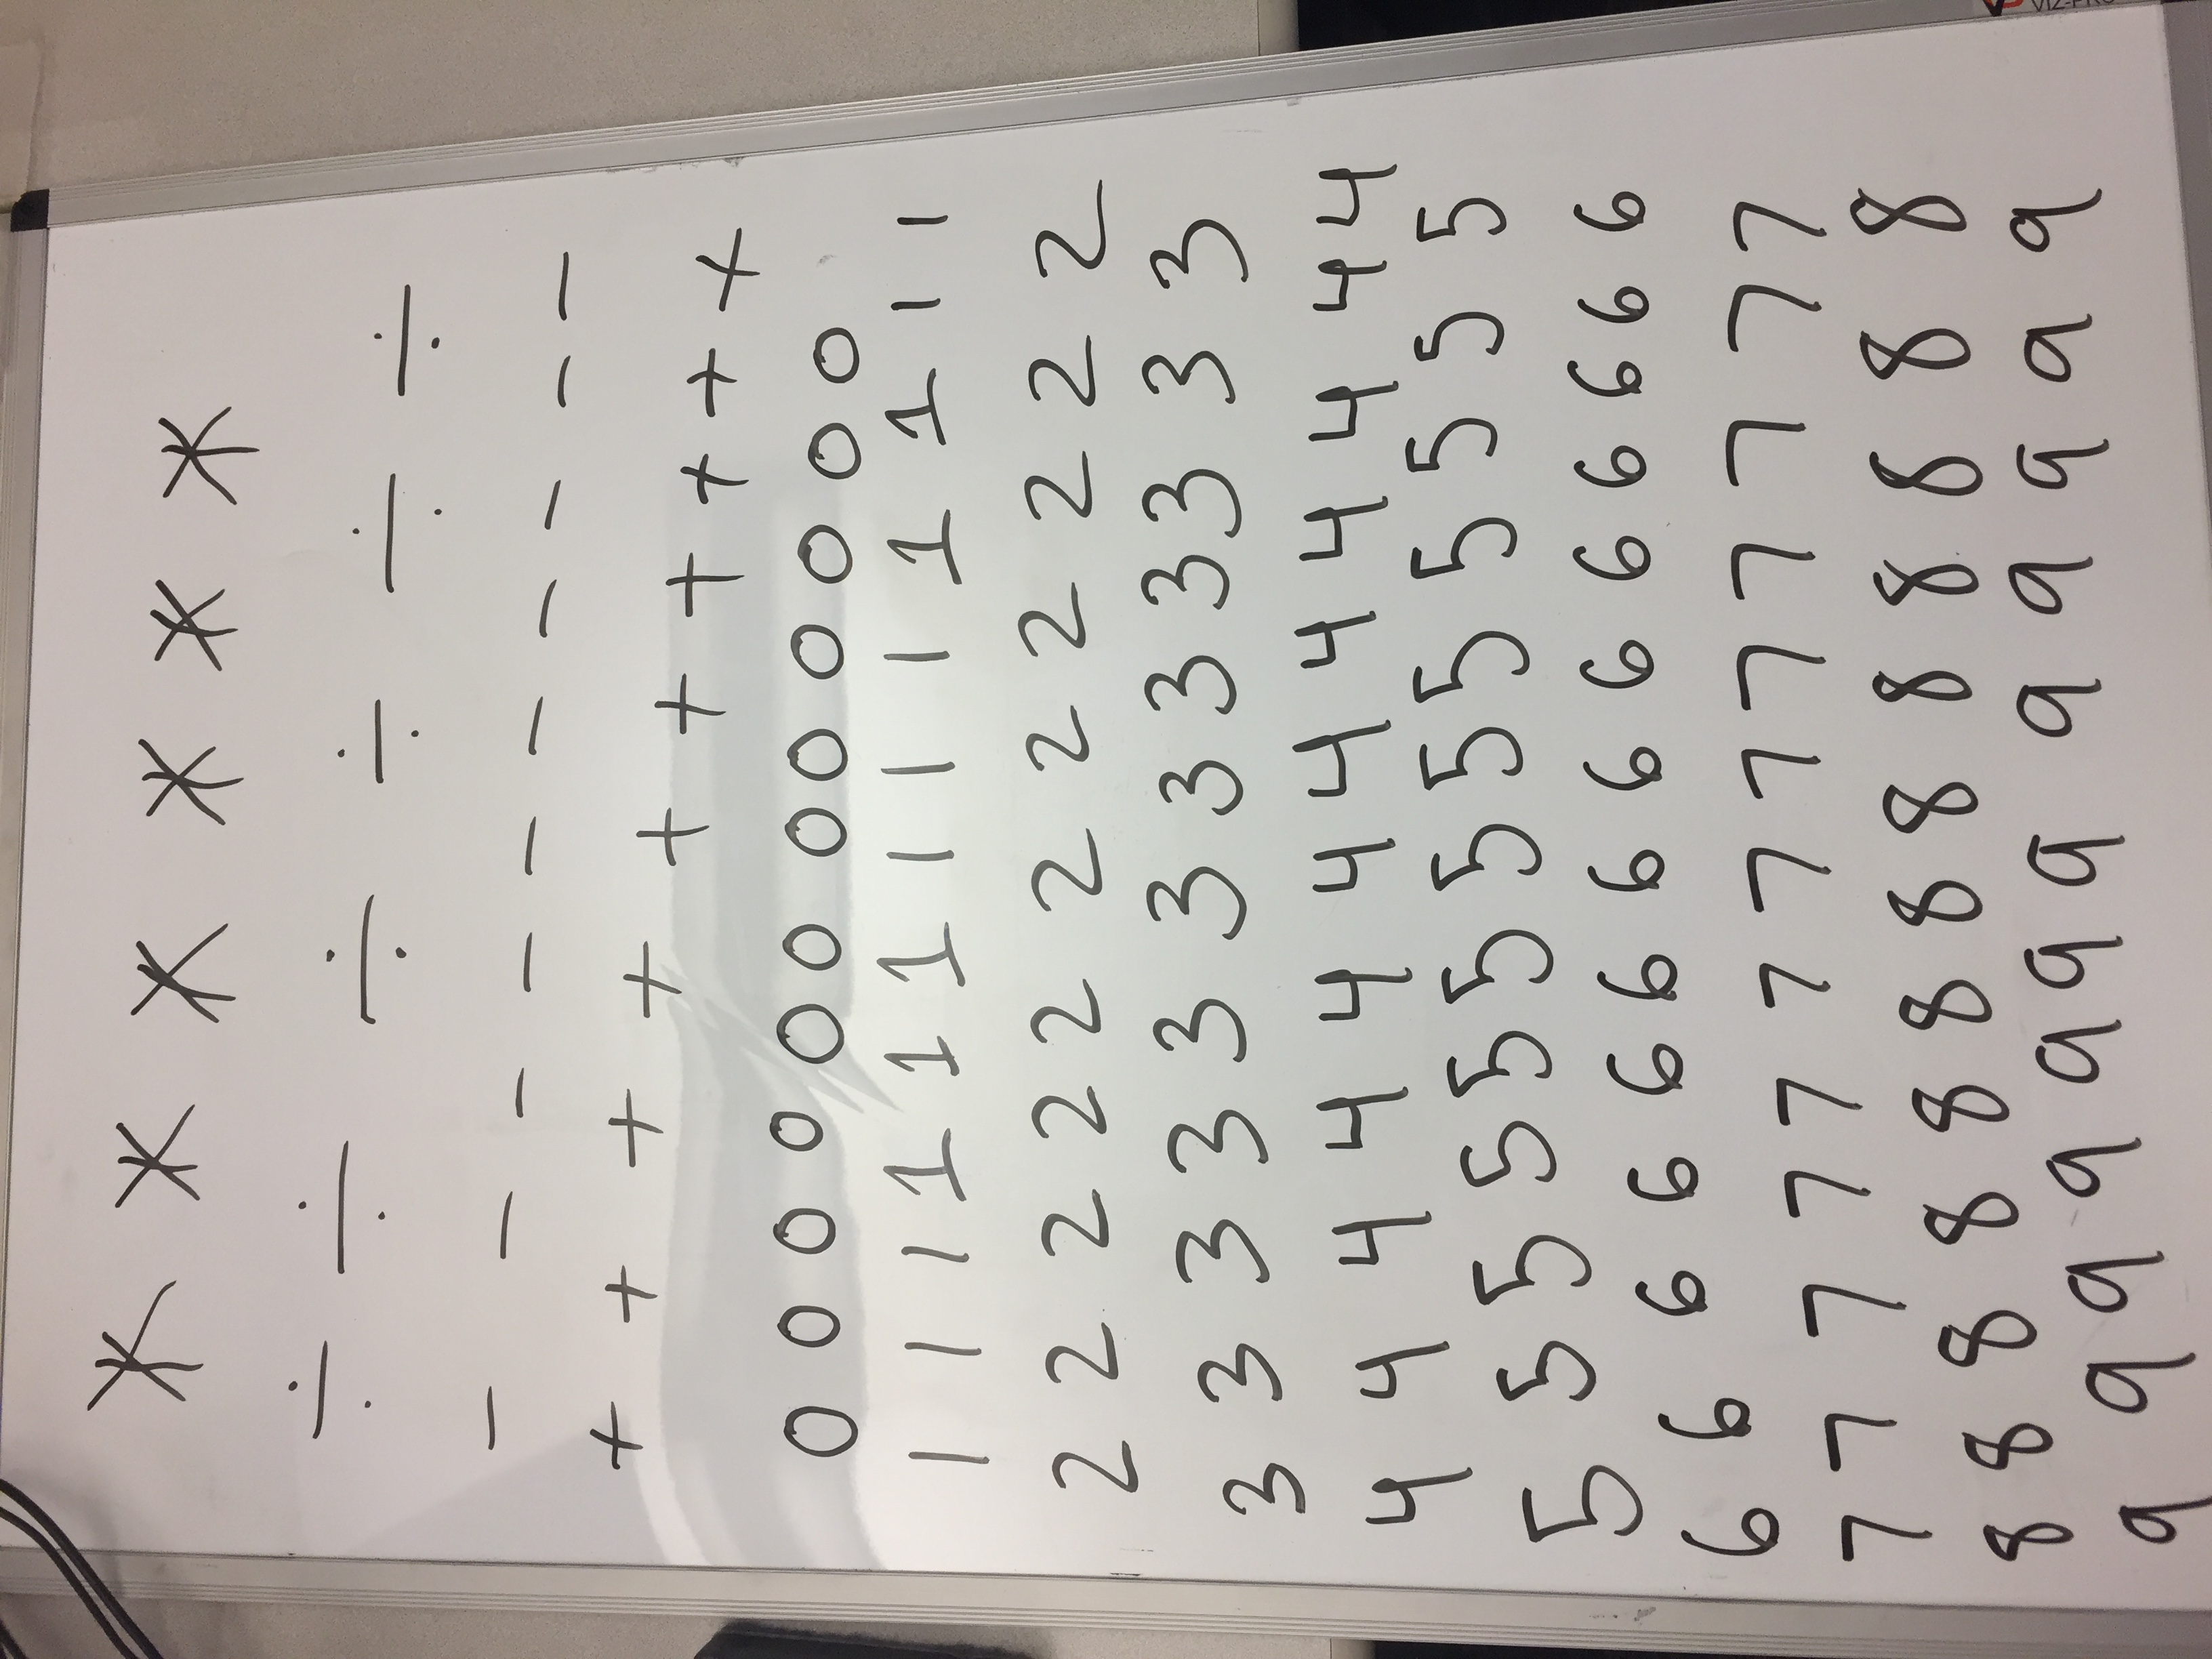 * * * * * *
÷ ÷ ÷ ÷ ÷ ÷
- - - - - - - - - -
+ + + + + + + + + +
0 0 0 0 0 0 0 0 0 0 0 0
1 1 1 1 1 1 1 1 1 1 1 1 1
2 2 2 2 2 2 2 2 2 2 2
3 3 3 3 3 3 3 3 3 3 3 3
4 4 4 4 4 4 4 4 4 4 4 4
5 5 5 5 5 5 5 5 5 5 5 5 5
6 6 6 6 6 6 6 6 6 6 6 6 6 6
7 7 7 7 7 7 7 7 7 7 7 7 7
8 8 8 8 8 8 8 8 8 8 8 8 8
9 9 9 9 9 9 9 9 9 9 9 9